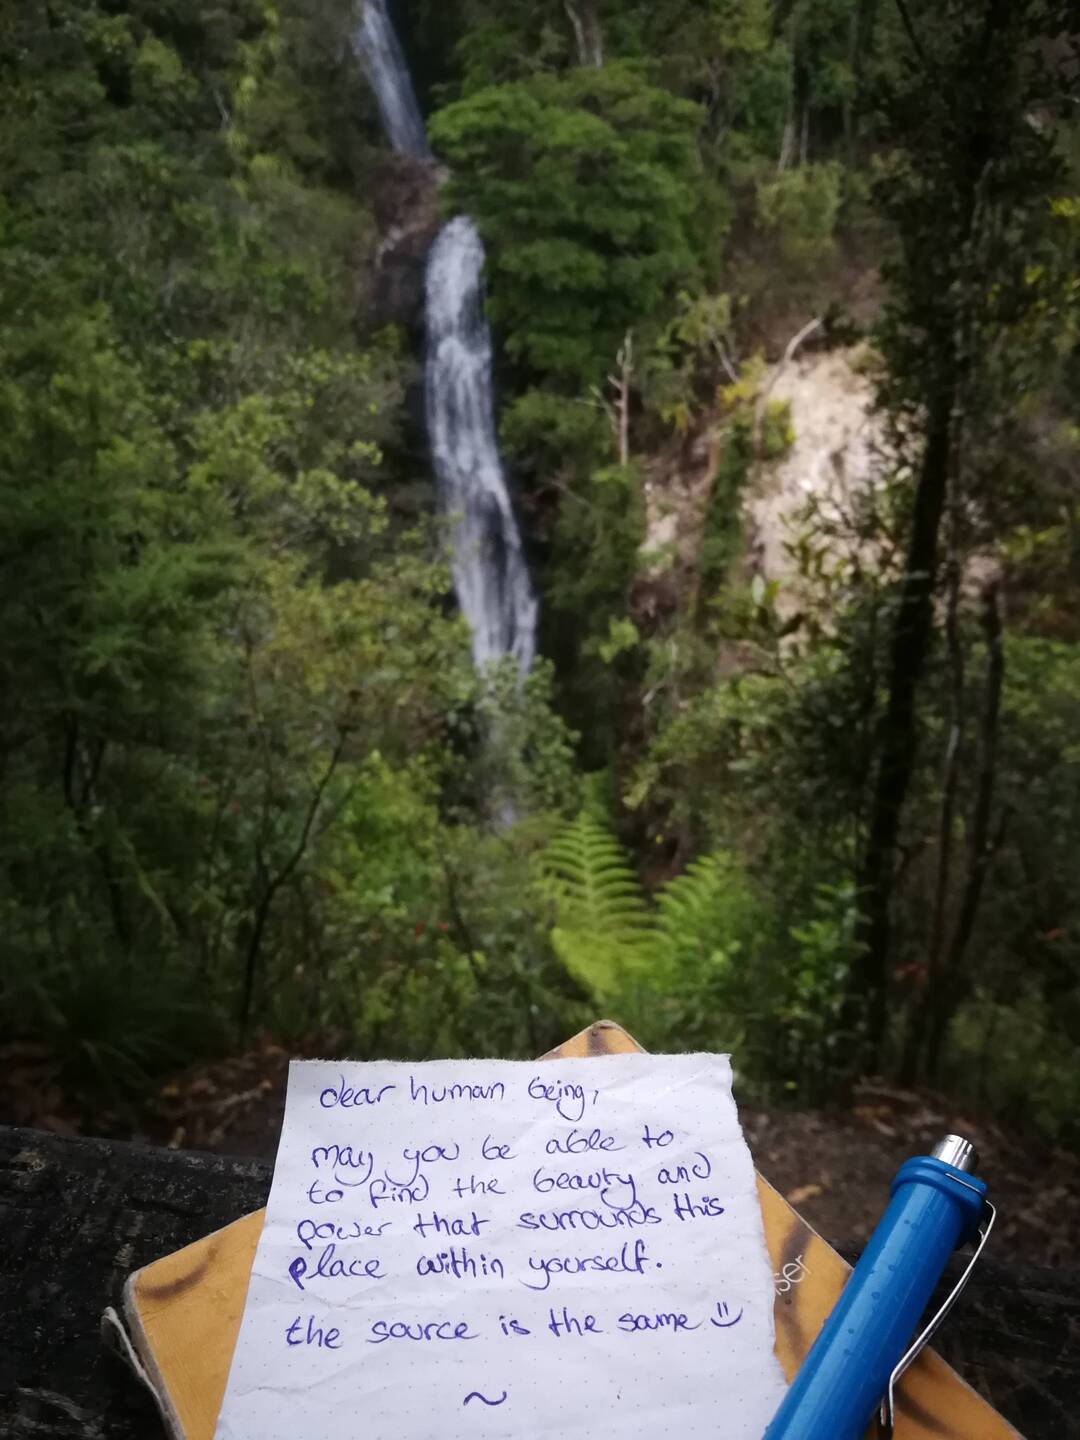 dear human being,
may you be able to
to find the beauty and
power that surrounds this
place within yourself.
the source is the same
ser